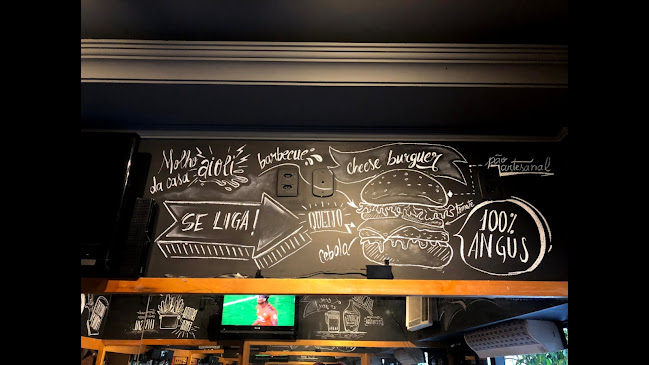 Molho
da casa
aioli
barbecue
cheese burguer
pão
artesanal
SE LIGA!
QUEIJO
tomate
cebola
100%
ANGUS